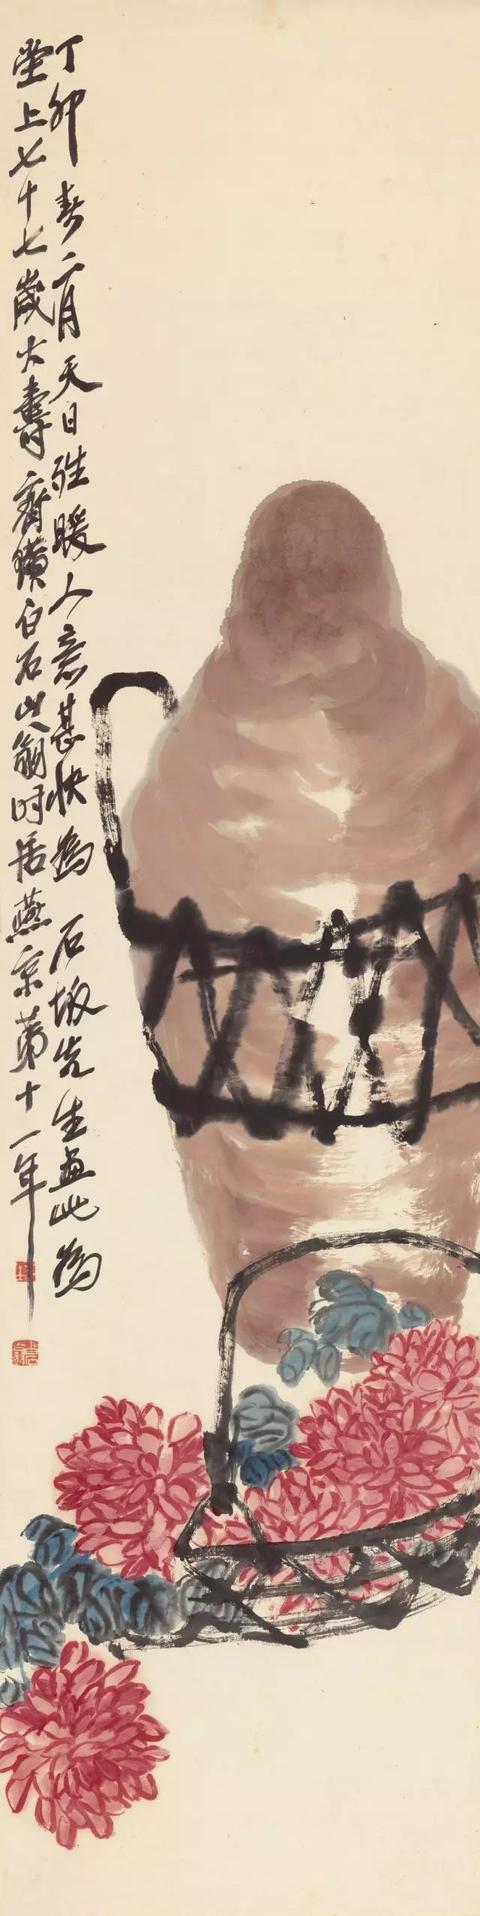 丁卯春二月天日雖暖人意甚快為 石坂先生画此為
堂上七十七歲大壽齊璜白石山翁時居燕京第十一年